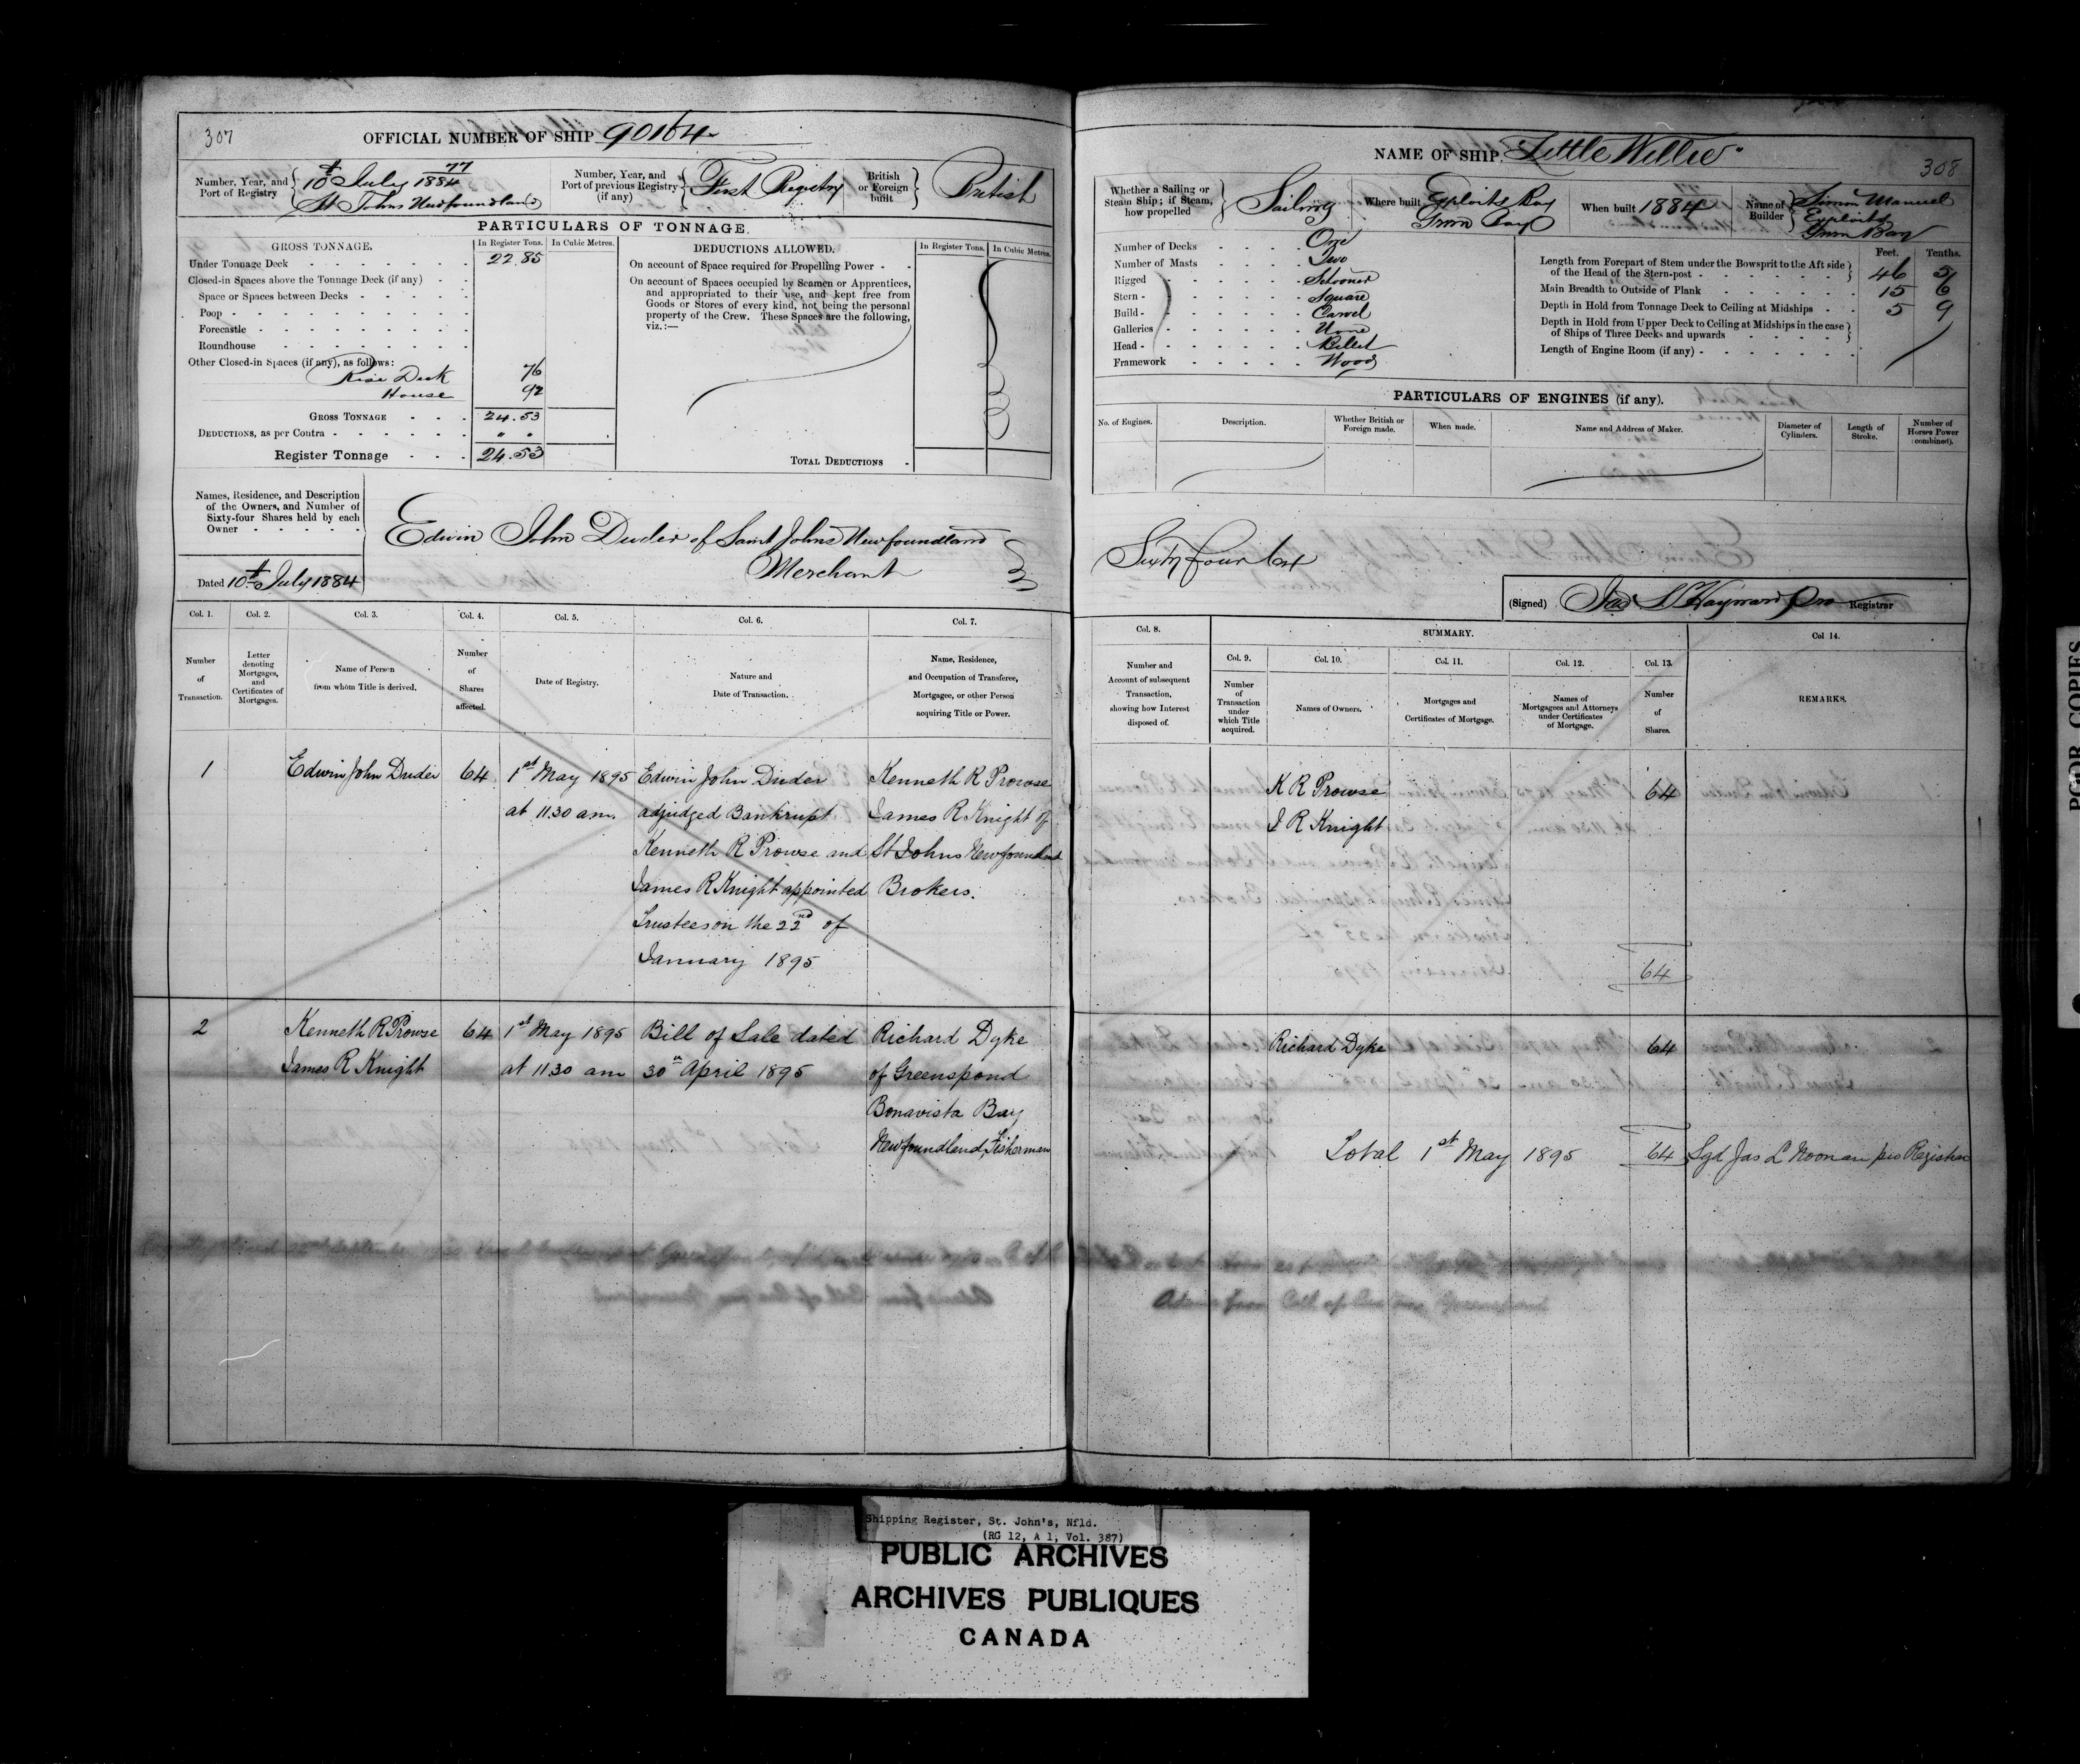 307
OFFICIAL NUMBER OF SHIP 90164
Number, Year, and
Port of Registry
77
10th July 1884
St Johns Newfoundland
Number, Year, and
Port of previous Registry
(if any)
First Registry
British
or Foreign
built
British
PARTICULARS OF TONNAGE.
GROSS TONNAGE.
In Register Tons.
In Cubic Metres.
Under Tonnage Deck 22.85
Closed-in Spaces above the Tonnage Deck (if any)
Space or Spaces between Decks
Poop
Forecastle
Roundhouse
Other Closed-in Spaces (if any), as follows:
Rise Deck 76
House 92
GROSS TONNAGE 24.53
DEDUCTIONS, as per Contra " "
Register Tonnage 24.53
DEDUCTIONS ALLOWED.
In Register Tons.
In Cubic Metres.
On account of Space required for Propelling Power
On account of Spaces occupied by Seamen or Apprentices,
and appropriated to their use, and kept free from
Goods or Stores of every kind, not being the personal
property of the Crew. These Spaces are the following,
viz.:—
TOTAL DEDUCTIONS
Names, Residence, and Description
of the Owners, and Number of
Sixty-four Shares held by each
Owner
Dated 10th July 1884
Edwin John Duder of Saint Johns Newfoundland
Merchant
Col. 1.
Number
of
Transaction.
Col. 2.
Letter
denoting
Mortgages,
and
Certificates of
Mortgages.
Col. 3.
Name of Person
from whom Title is derived.
Col. 4.
Number
of
Shares
affected.
Col. 5.
Date of Registry.
Col. 6.
Nature and
Date of Transaction.
Col. 7.
Name, Residence,
and Occupation of Transferee,
Mortgagee, or other Person
acquiring Title or Power.
1
Edwin John Duder
64
1st May 1895
at 11.30 am.
Edwin John Duder
adjudged Bankrupt
Kenneth R Prowse and
James R Knight appointed
Trustees on the 22nd of
January 1895
Kenneth R Prowse
James R Knight of
St Johns Newfoundland
Brokers.
2
Kenneth R Prowse
James R Knight
64
1st May 1895
at 11.30 am
Bill of Sale dated
30th April 1895
Richard Dyke
of Greenspond
Bonavista Bay
Newfoundland, Fisherman
NAME OF SHIP Little Willie
308
Whether a Sailing or
Steam Ship; if Steam,
how propelled
Sailing
Where built
Exploits Bay
Green Bay
When built 1884
Name of
Builder
Simon Manuel
Exploits
Green Bay
Number of Decks One
Number of Masts Two
Rigged Schooner
Stern Square
Build Carvel
Galleries None
Head Billet
Framework Wood
Feet. Tenths.
Length from Forepart of Stem under the Bowsprit to the Aft side
of the Head of the Stern-post 46 5
Main Breadth to Outside of Plank 15 6
Depth in Hold from Tonnage Deck to Ceiling at Midships 5 9
Depth in Hold from Upper Deck to Ceiling at Midships in the case
of Ships of Three Decks and upwards
Length of Engine Room (if any)
PARTICULARS OF ENGINES (if any).
No. of Engines.
Description.
Whether British or
Foreign made.
When made.
Name and Address of Maker.
Diameter of
Cylinders.
Length of
Stroke.
Number of
Horses Power
(combined).
Sixty four
(Signed) Jas S Hayward Pro Registrar
Col. 8.
Number and
Account of subsequent
Transaction,
showing how Interest
disposed of.
SUMMARY.
Col. 9.
Number
of
Transaction
under
which Title
acquired.
Col. 10.
Names of Owners.
Col. 11.
Mortgages and
Certificates of Mortgage.
Col. 12.
Names of
Mortgagees and Attorneys
under Certificates
of Mortgage.
Col. 13.
Number
of
Shares.
Col 14.
REMARKS.
K R Prowse
J R Knight
64
64
Richard Dyke
64
Total 1st May 1895 64 Sgd Jas L Noonan pro Registrar
PGOR COPIES
Shipping Register, St. John's, Nfld.
(RG 12, A 1, Vol. 387)
PUBLIC ARCHIVES
ARCHIVES PUBLIQUES
CANADA